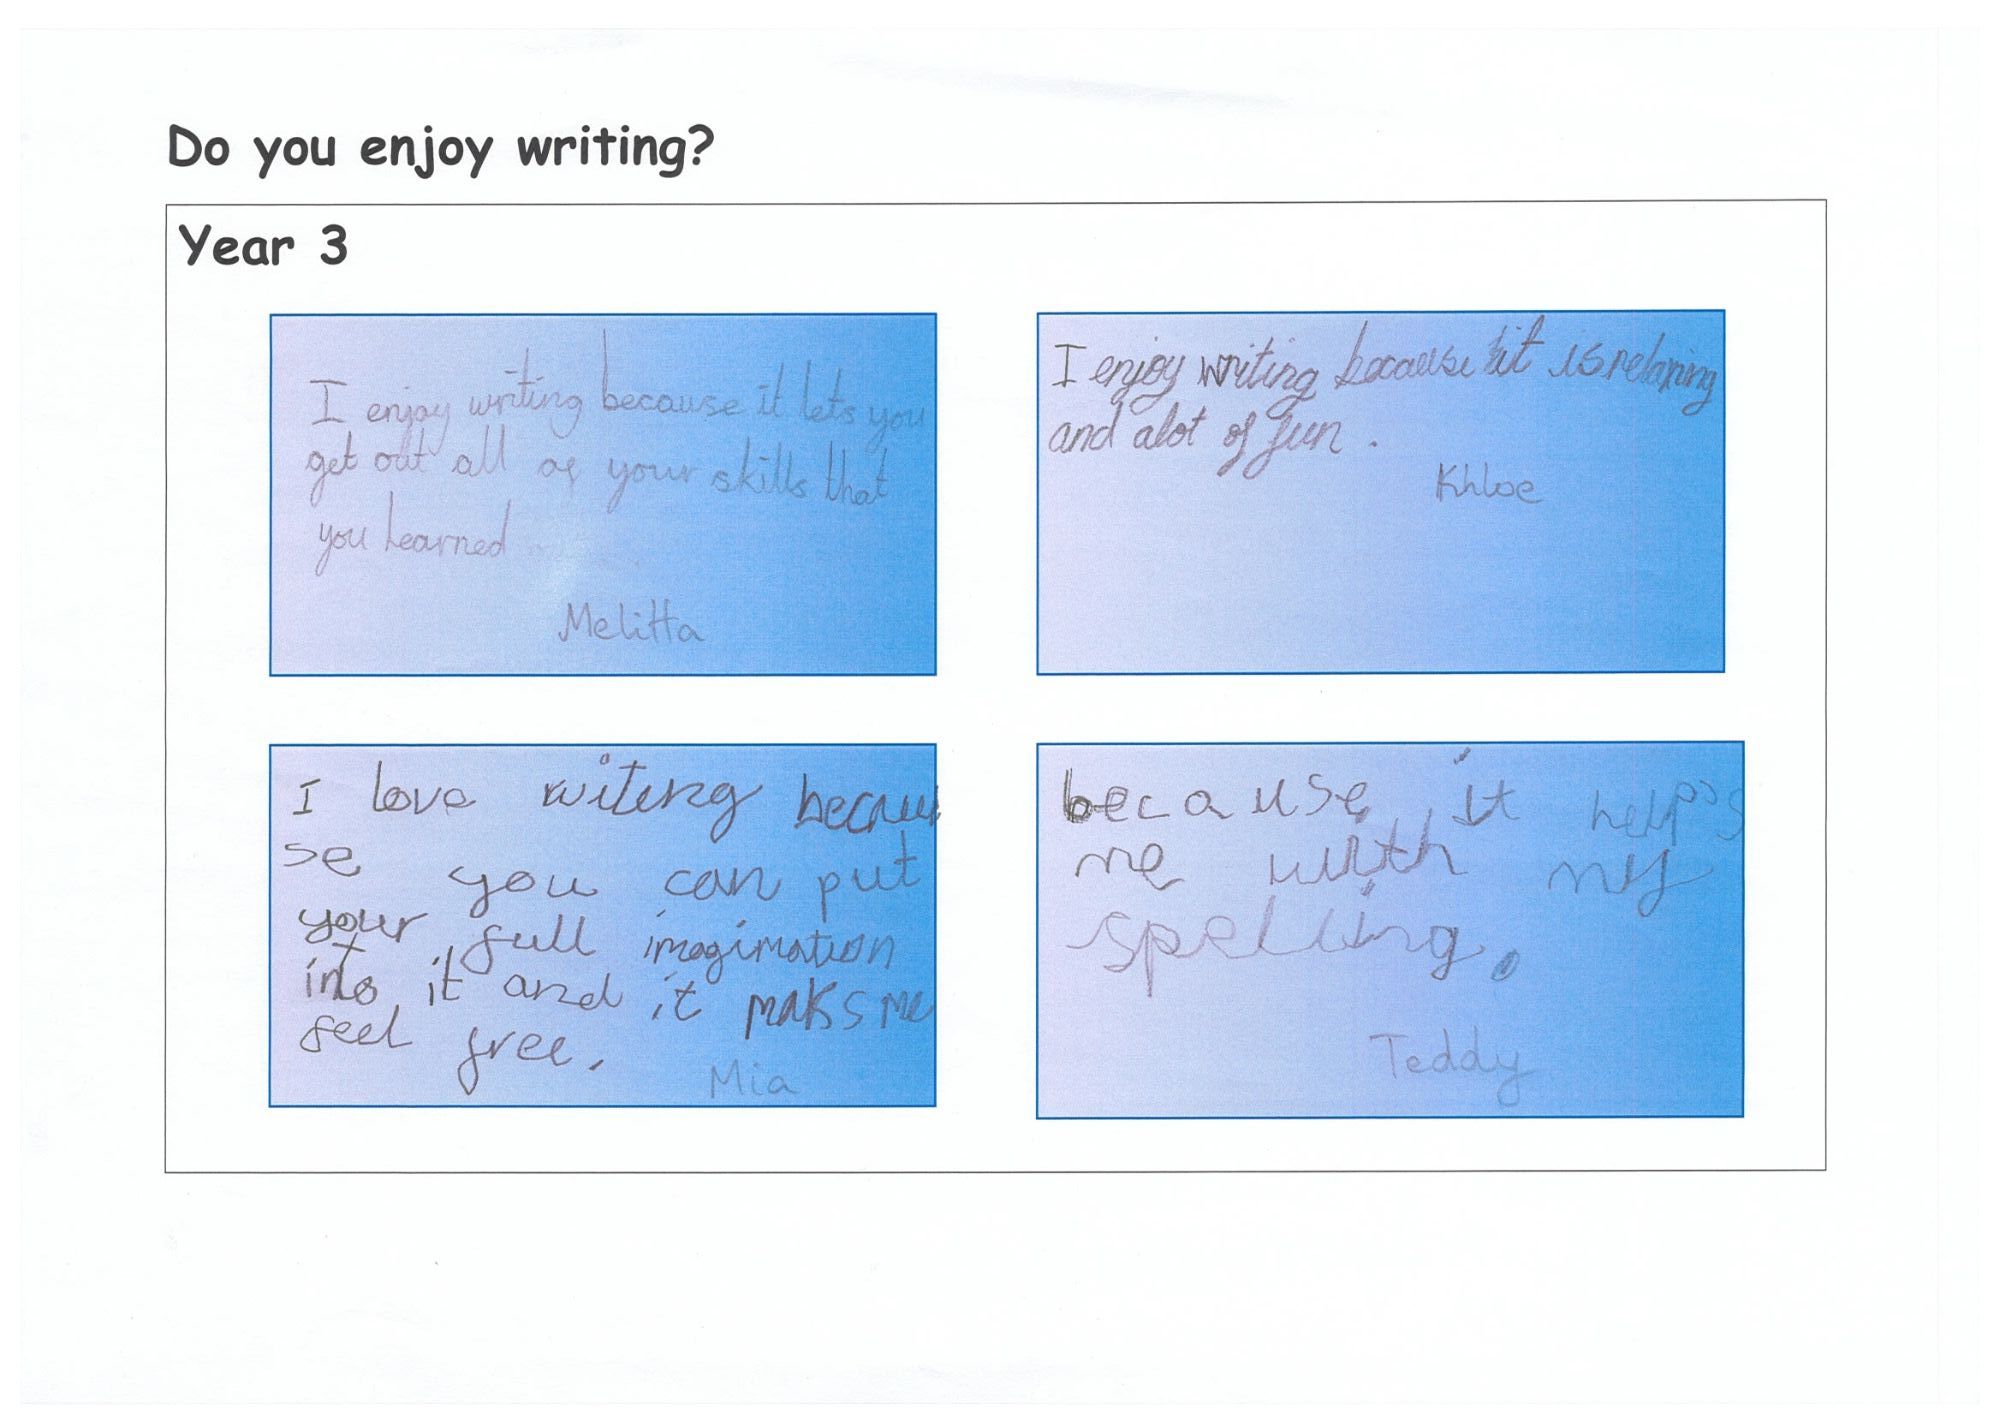 Do you enjoy writing?
Year 3
I enjoy writing because it lets you
get out all of your skills that
you learned
Melitta
I enjoy writing because it is relaxing
and alot of fun.
Khloe
I love writeng becau
se you can put
your full imagination
into it and it maks me
feel free.
Mia
because it helps
me with my
spelling.
Teddy